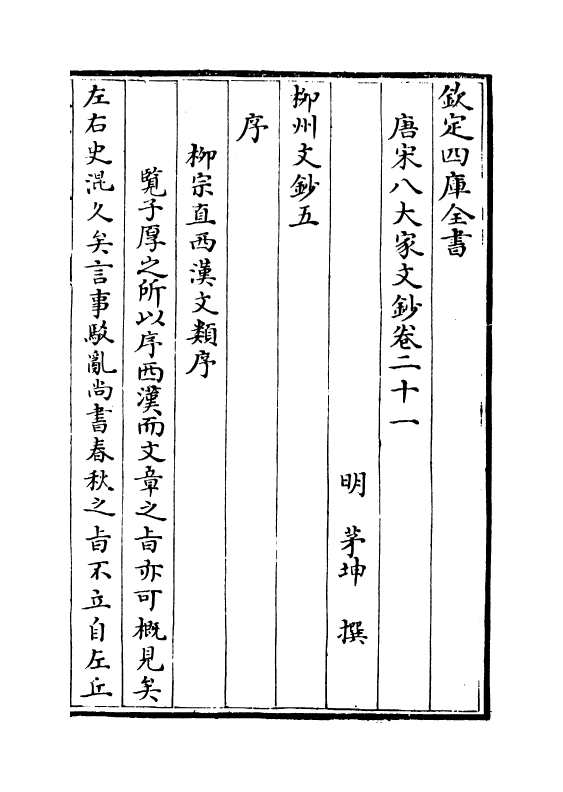 欽定四庫全書
唐宋八大家文鈔卷二十一
明　茅坤　撰
柳州文鈔五
序
柳宗直西漢文類序
覽子厚之所以序西漢而文章之旨亦可概見矣
左右史混久矣言事駮亂尚書春秋之旨不立自左丘